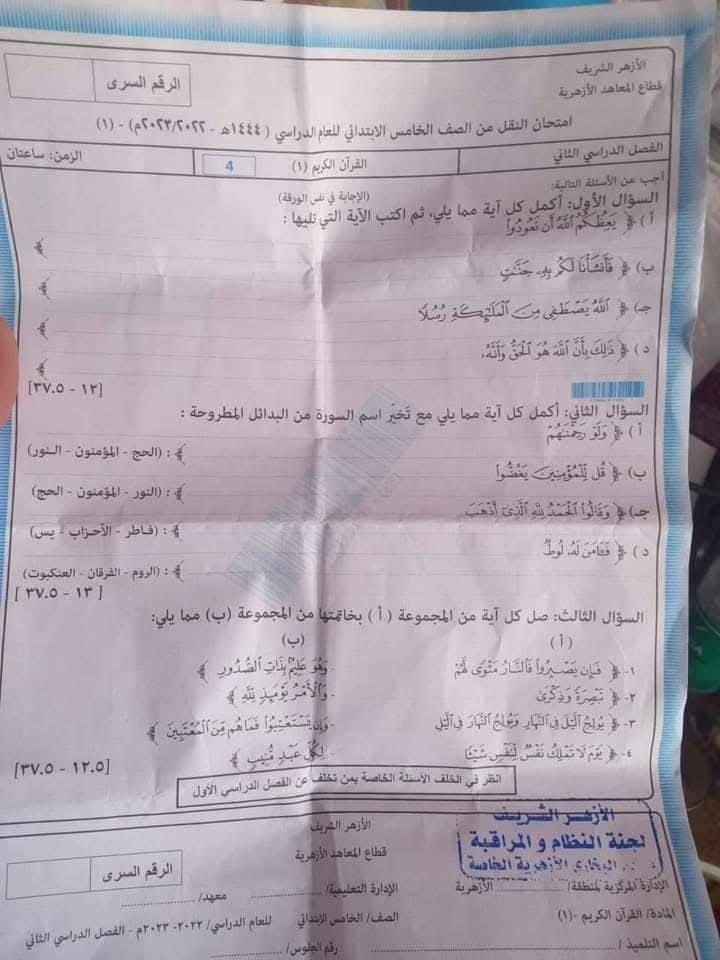 الأزهر الشريف
قطاع المعاهد الأزهرية
الرقم السرى
امتحان النقل من الصف الخامس الابتدائي للعام الدراسي ( ١٤٤٤هـ - ٢٠٢٣/٢٠٢٢م) - (١)
الفصل الدراسي الثاني القرآن الكريم (١) 4 الزمن: ساعتان
أجب عن الأسئلة التالية: (الإجابة في نفس الورقة)
السؤال الأول: أكمل كل آية مما يلي، ثم اكتب الآية التي تليها :
أ ) ﴿ يَعِظُكُمُ اللَّهُ أَن تَعُودُوا ﴾
ب) ﴿ فَأَنشَأْنَا لَكُم بِهِ جَنَّاتٍ ﴾
جـ) ﴿ اللَّهُ يَصْطَفِي مِنَ الْمَلَائِكَةِ رُسُلًا ﴾
د ) ﴿ ذَلِكَ بِأَنَّ اللَّهَ هُوَ الْحَقُّ وَأَنَّهُ ﴾
[١٢ - ٣٧.٥]
السؤال الثاني: أكمل كل آية مما يلي مع تخيّر اسم السورة من البدائل المطروحة :
أ ) ﴿ وَلَوْ رَحِمْنَاهُمْ ﴾ : (الحج - المؤمنون - النور)
ب) ﴿ قُل لِّلْمُؤْمِنِينَ يَغُضُّوا ﴾ : (النور - المؤمنون - الحج)
جـ) ﴿ وَقَالُوا الْحَمْدُ لِلَّهِ الَّذِي أَذْهَبَ ﴾ : (فاطر - الأحزاب - يس)
د ) ﴿ فَآمَنَ لَهُ لُوطٌ ﴾ : (الروم - الفرقان - العنكبوت)
[ ١٣ - ٣٧.٥ ]
السؤال الثالث: صل كل آية من المجموعة ( أ ) بخاتمتها من المجموعة (ب) مما يلي:
( أ ) (ب)
١- ﴿ فَإِن يَصْبِرُوا فَالنَّارُ مَثْوًى لَّهُمْ - وَهُوَ عَلِيمٌ بِذَاتِ الصُّدُورِ ﴾
٢- ﴿ تَبْصِرَةً وَذِكْرَى - وَالْأَمْرُ يَوْمَئِذٍ لِلَّهِ ﴾
٣- ﴿ يُولِجُ الَّيْلَ فِي النَّهَارِ وَيُولِجُ النَّهَارَ فِي الَّيْلِ - وَإِن يَسْتَعْتِبُوا فَمَا هُم مِّنَ الْمُعْتَبِينَ ﴾
٤- ﴿ يَوْمَ لَا تَمْلِكُ نَفْسٌ لِّنَفْسٍ شَيْئًا - لِكُلِّ عَبْدٍ مُّنِيبٍ ﴾
[١٢.٥ - ٣٧.٥]
انظر في الخلف الأسئلة الخاصة بمن تخلف عن الفصل الدراسي الأول
الأزهر الشريف
لجنة النظام و المراقبة
البخاري الأزهرية الخاصة
الأزهر الشريف
قطاع المعاهد الأزهرية
الرقم السرى
الإدارة المركزية لمنطقة/ الأزهرية الإدارة التعليمية/ معهد/
المادة/ القرآن الكريم -(١) الصف/ الخامس الابتدائي للعام الدراسي/ ٢٠٢٢- ٢٠٢٣م - الفصل الدراسي الثاني
اسم التلميذ / رقم الجلوس/